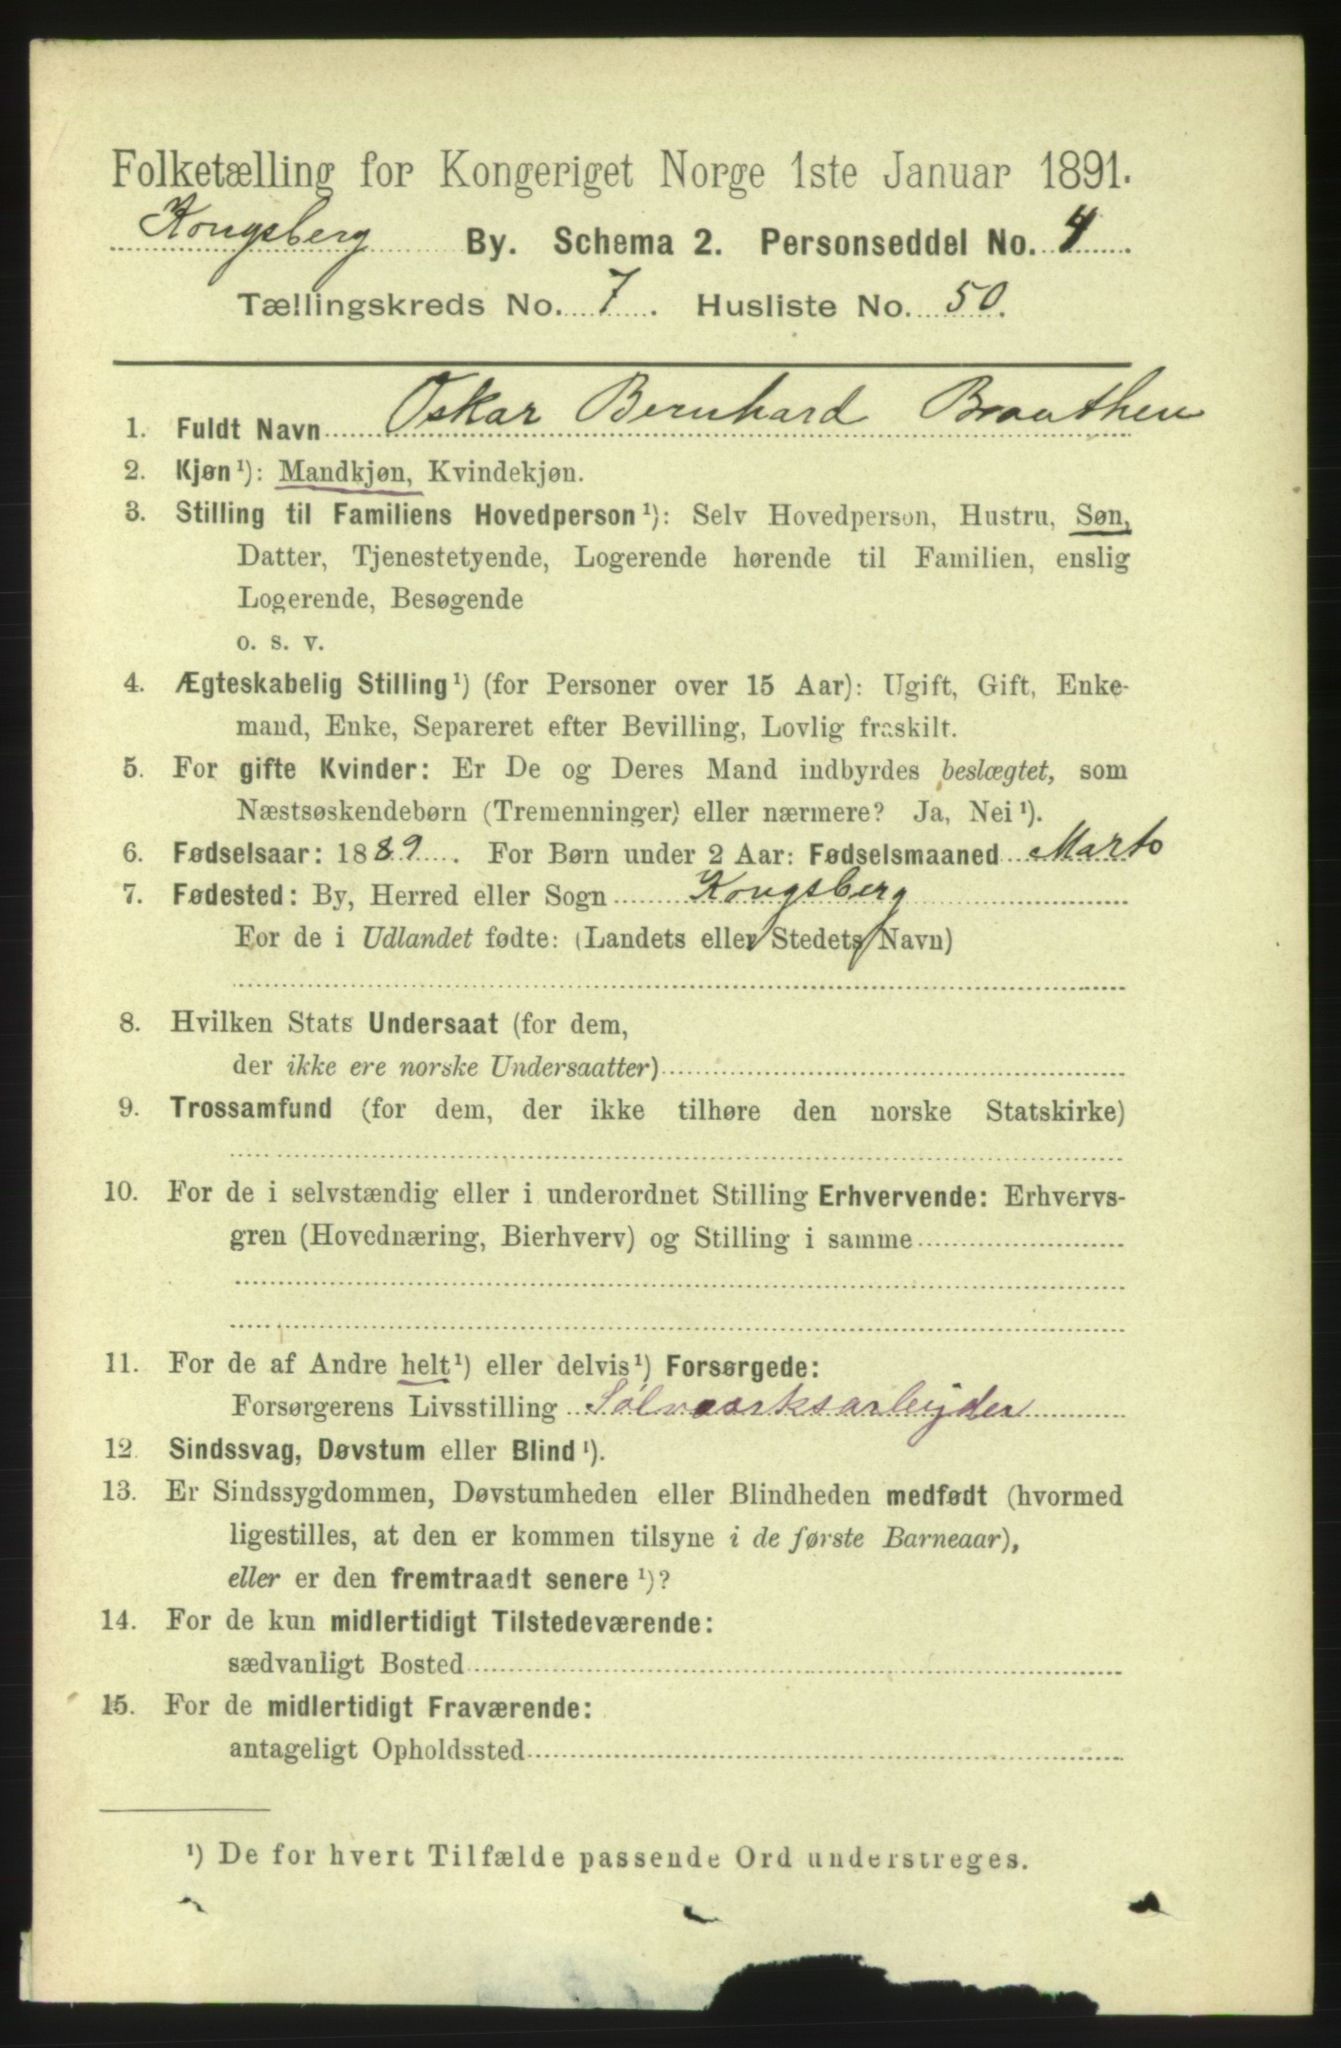 Folketælling for Kongeriget Norge 1ste Januar 1891.
Kongsberg By. Schema 2. Personseddel No. 4
Tællingskreds No. 7. Husliste No. 50.
1. Fuldt Navn Oskar Bernhard Braathen
2. Kjøn ¹): Mandkjøn, Kvindekjøn.
3. Stilling til Familiens Hovedperson ¹): Selv Hovedperson, Hustru, Søn,
Datter, Tjenestetyende, Logerende hørende til Familien, enslig
Logerende, Besøgende
o. s. v.
4. Ægteskabelig Stilling ¹) (for Personer over 15 Aar): Ugift, Gift, Enke-
mand, Enke, Separeret efter Bevilling, Lovlig fraskilt.
5. For gifte Kvinder: Er De og Deres Mand indbyrdes beslægtet, som
Næstsøskendebørn (Tremenninger) eller nærmere? Ja, Nei ¹).
6. Fødselsaar: 1889. For Børn under 2 Aar: Fødselsmaaned Marts
7. Fødested: By, Herred eller Sogn Kongsberg
For de i Udlandet fødte: (Landets eller Stedets Navn)
8. Hvilken Stats Undersaat (for dem,
der ikke ere norske Undersaatter)
9. Trossamfund (for dem, der ikke tilhøre den norske Statskirke)
10. For de i selvstændig eller i underordnet Stilling Erhvervende: Erhvervs-
gren (Hovednæring, Bierhverv) og Stilling i samme
11. For de af Andre helt ¹) eller delvis ¹) Forsørgede:
Forsørgerens Livsstilling Sølvværksarbejder
12. Sindssvag, Døvstum eller Blind ¹).
13. Er Sindssygdommen, Døvstumheden eller Blindheden medfødt (hvormed
ligestilles, at den er kommen tilsyne i de første Barneaar),
eller er den fremtraadt senere ¹)?
14. For de kun midlertidigt Tilstedeværende:
sædvanligt Bosted
15. For de midlertidigt Fraværende:
antageligt Opholdssted
¹) De for hvert Tilfælde passende Ord understreges.